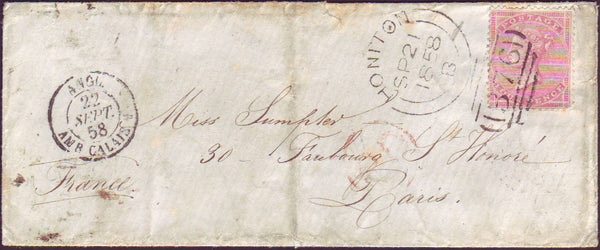 HONITON
SP 21
1858
B
376
POSTAGE
ANGL.
22
SEPT.
58
AMB. CALAIS
Miss Sumpter
30 - Faubourg St Honoré
Paris.
France